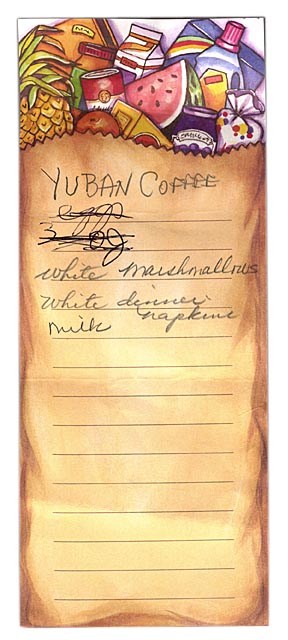 YUBAN COFFEE
eggs
White Marshmallows
White dinner
napkins
Milk